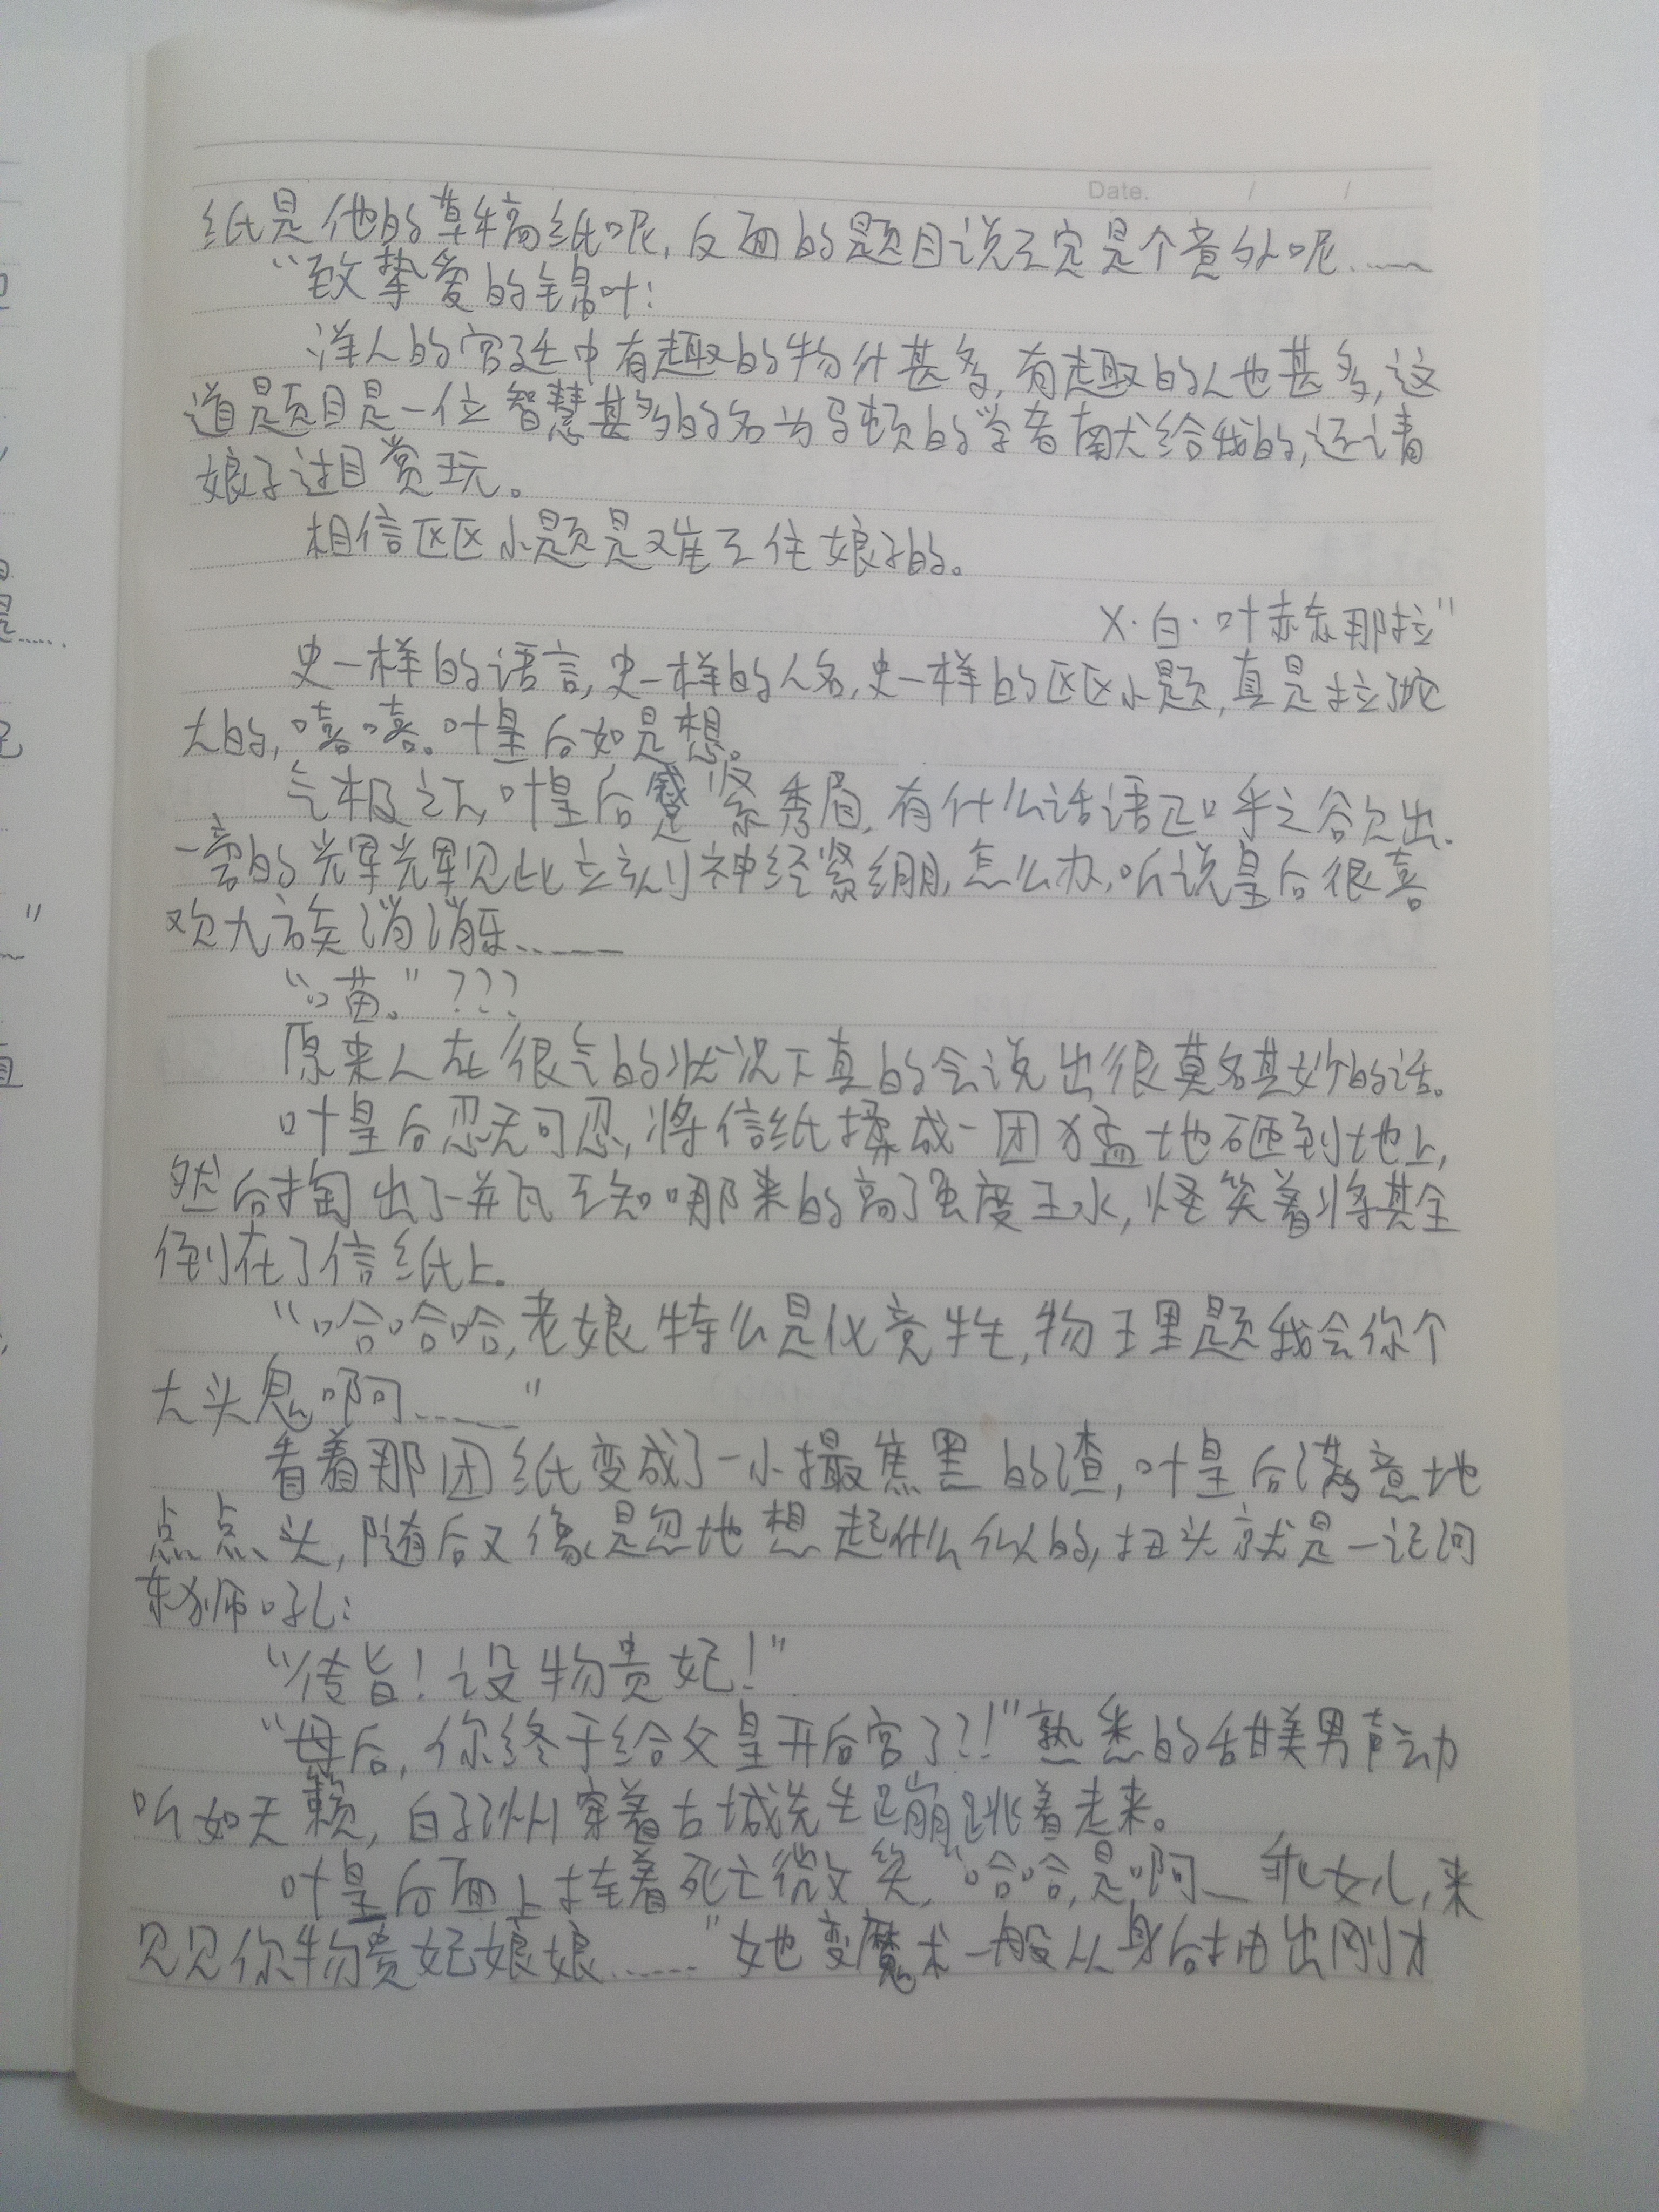 Date. / /
纸是他的草稿纸呢,反面的题目说不定是个意外呢……
“致挚爱的锦叶:
洋人的宫廷中有趣的物什甚多,有趣的人也甚多,这
道题目是一位智慧甚多的名为马顿的学者献给我的,还请
娘子过目赏玩。
相信区区小题是难不住娘子的。
X·白·叶赫那拉”
史一样的语言,史一样的人名,史一样的区区小题,真是拉了坨
大的,嘻嘻。叶皇后如是想。
气极之下,叶皇后蹙紧秀眉,有什么话语正口乎之欲出.
一旁的光军光军见此立刻神经紧绷,怎么办,听说皇后很喜
欢九族消消乐……
“喵。”???
原来人在很气的状况下真的会说出很莫名其妙的话。
叶皇后忍无可忍,将信纸揉成一团猛地砸到地上,
然后掏出了一瓶不知哪来的高强度王水,怪笑着将其全
倒在了信纸上。
“哈哈哈,老娘特么是化竞生,物理题我会你个
大头鬼啊……”
看着那团纸变成了一小撮焦黑的渣,叶皇后满意地
点点头,随后又像是忽地想起什么似的,扭头就是一记河
东狮吼:
“传旨!设物贵妃!”
“母后,你终于给父皇开后宫了?!”熟悉的甜美男声动
听如天籁,白子洲穿着古城先生蹦跳着走来。
叶皇后面上挂着死亡微笑,“哈哈,是啊…乖女儿,来
见见你物贵妃娘娘……”她变魔术一般从身后抽出刚才